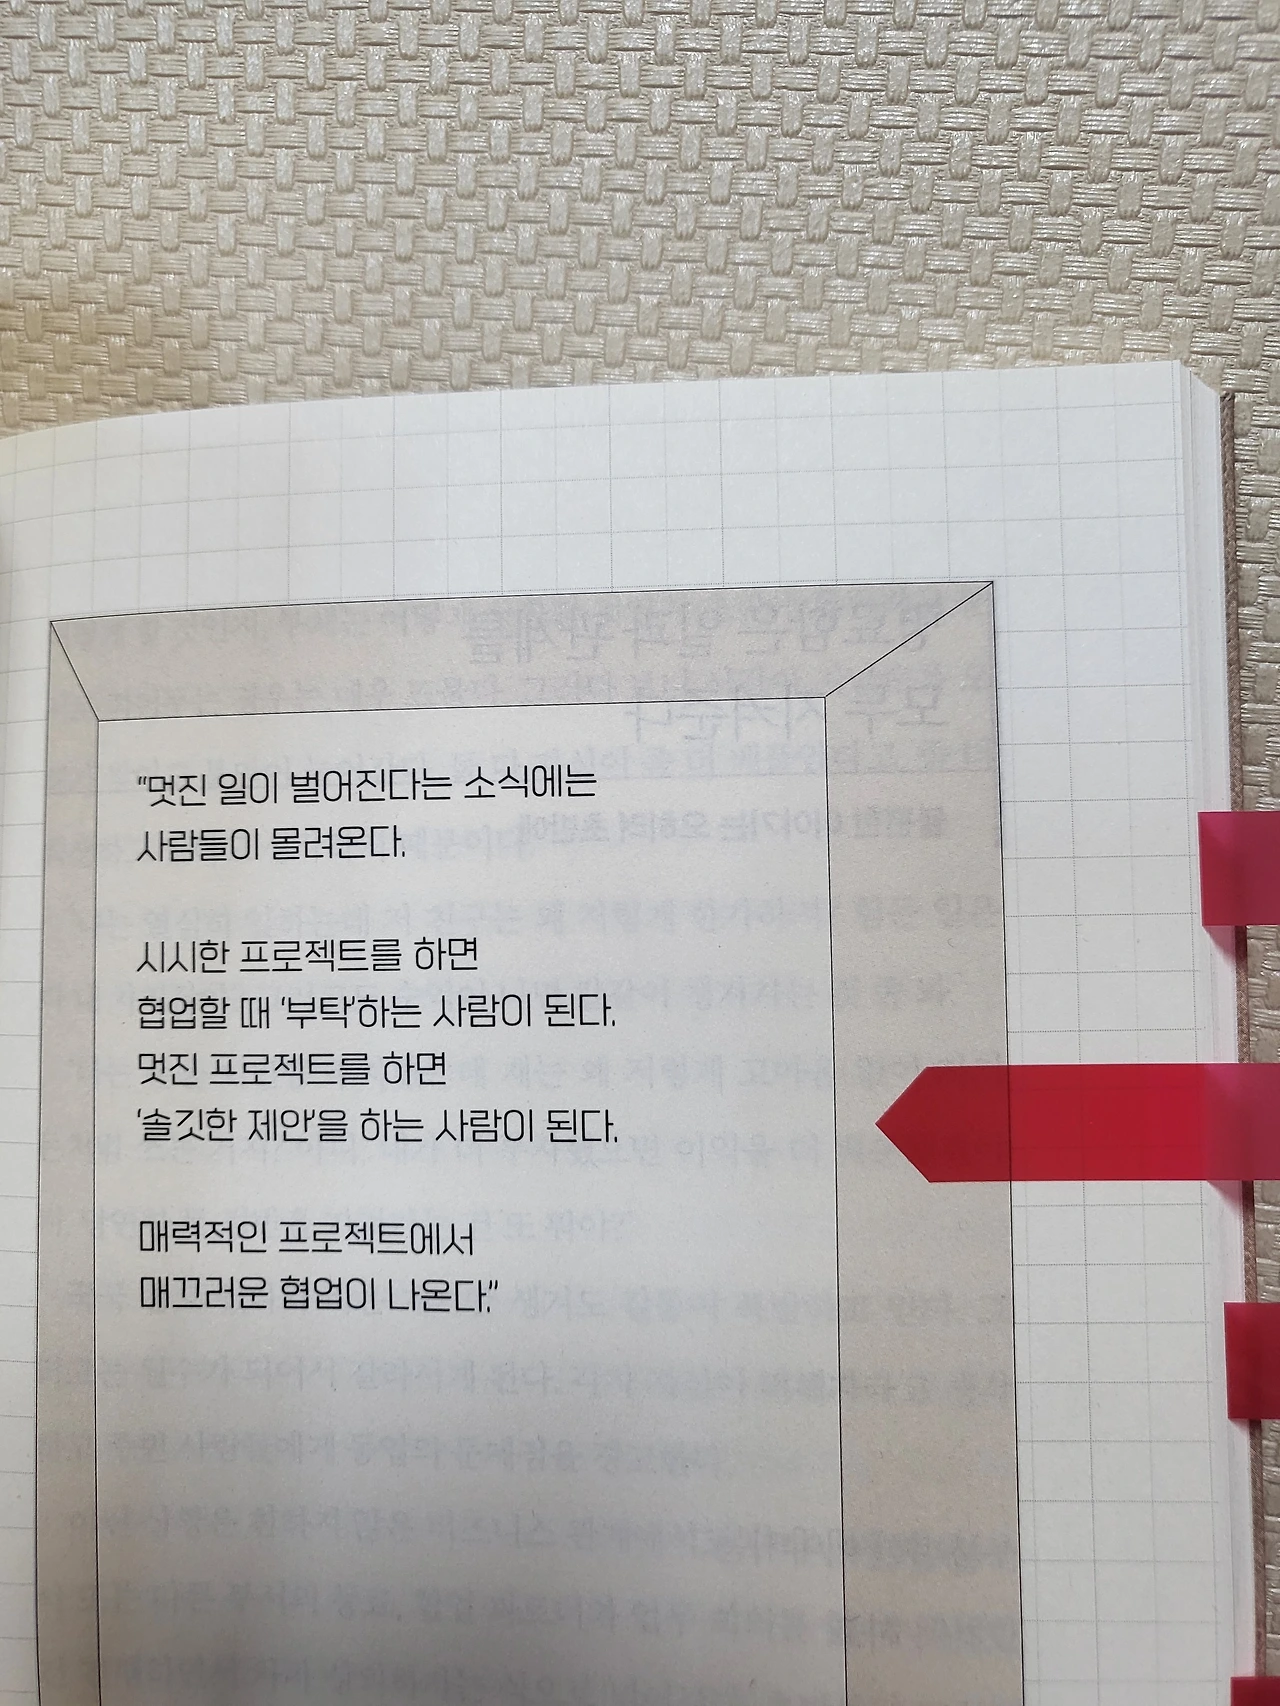 "멋진 일이 벌어진다는 소식에는
사람들이 몰려온다.
시시한 프로젝트를 하면
협업할 때 '부탁'하는 사람이 된다.
멋진 프로젝트를 하면
'솔깃한 제안'을 하는 사람이 된다.
매력적인 프로젝트에서
매끄러운 협업이 나온다."